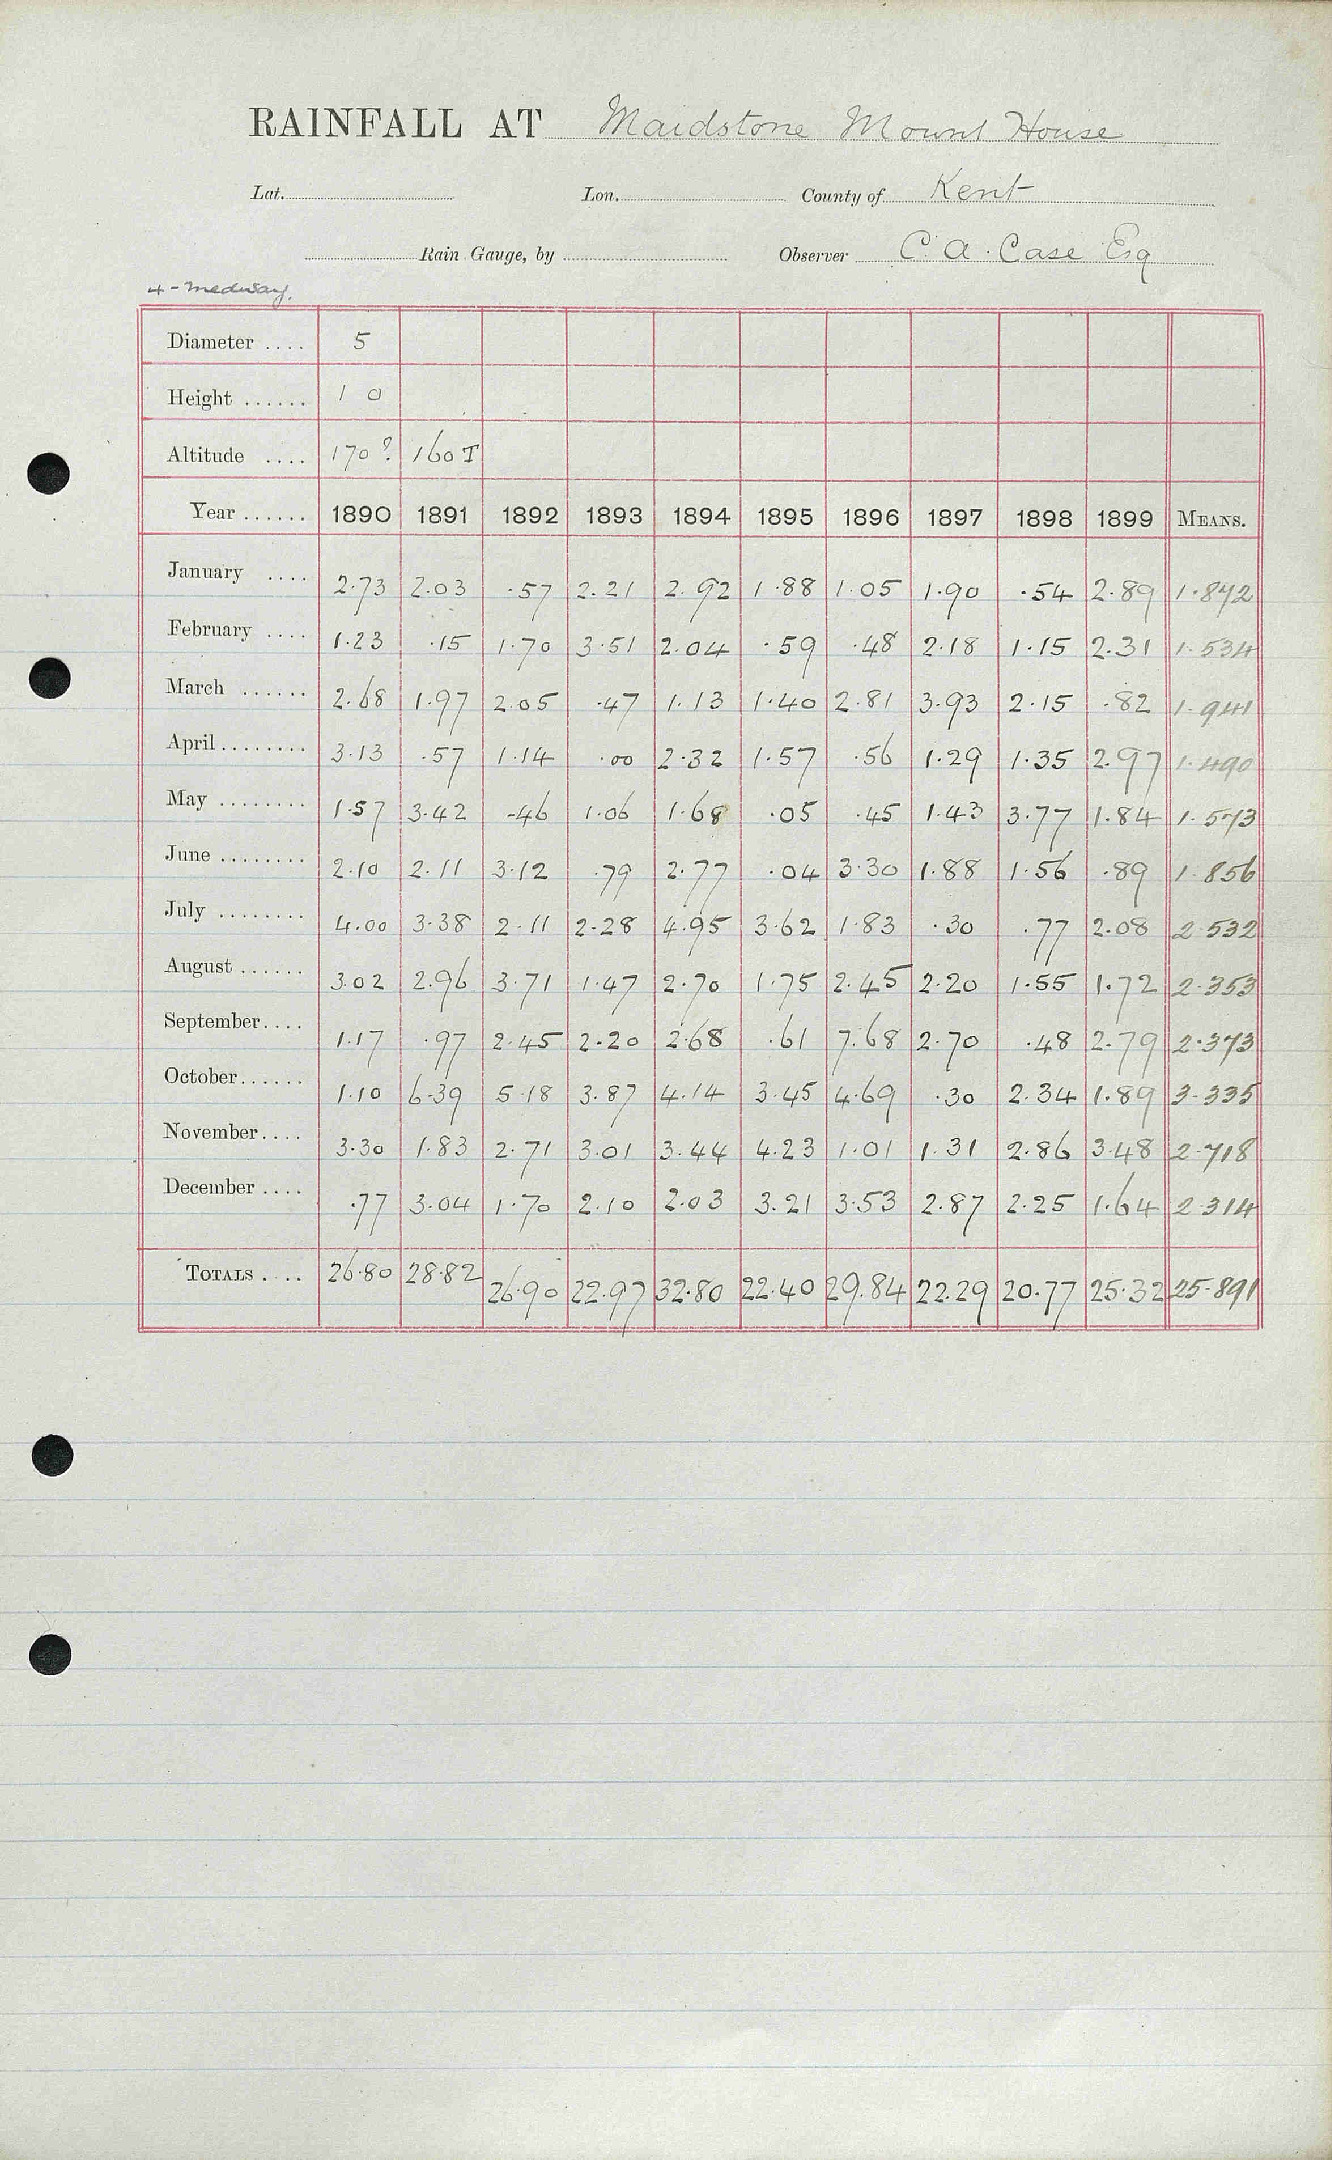 RAINFALL AT Maidstone Mount House
Lat. Lon. County of Kent
Rain Gauge, by Observer C. A. Case Esq
4 - Medway.
Diameter .... 5
Height ...... 1 0
Altitude .... 170? 160T
Year ...... 1890 1891 1892 1893 1894 1895 1896 1897 1898 1899 MEANS.
January .... 2.73 2.03 .57 2.21 2.92 1.88 1.05 1.90 .54 2.89 1.872
February .... 1.23 .15 1.70 3.51 2.04 .59 .48 2.18 1.15 2.31 1.534
March ...... 2.68 1.97 2.05 .47 1.13 1.40 2.81 3.93 2.15 .82 1.941
April ........ 3.13 .57 1.14 .00 2.32 1.57 .56 1.29 1.35 2.97 1.490
May ........ 1.57 3.42 .46 1.06 1.68 .05 .45 1.43 3.77 1.84 1.573
June ........ 2.10 2.11 3.12 .79 2.77 .04 3.30 1.88 1.56 .89 1.856
July ........ 4.00 3.38 2.11 2.28 4.95 3.62 1.83 .30 .77 2.08 2.532
August ...... 3.02 2.96 3.71 1.47 2.70 1.75 2.45 2.20 1.55 1.72 2.353
September .... 1.17 .97 2.45 2.20 2.68 .61 7.68 2.70 .48 2.79 2.373
October ...... 1.10 6.39 5.18 3.87 4.14 3.45 4.69 .30 2.34 1.89 3.335
November .... 3.30 1.83 2.71 3.01 3.44 4.23 1.01 1.31 2.86 3.48 2.718
December .... .77 3.04 1.70 2.10 2.03 3.21 3.53 2.87 2.25 1.64 2.314
TOTALS .... 26.80 28.82 26.90 22.97 32.80 22.40 29.84 22.29 20.77 25.32 25.891